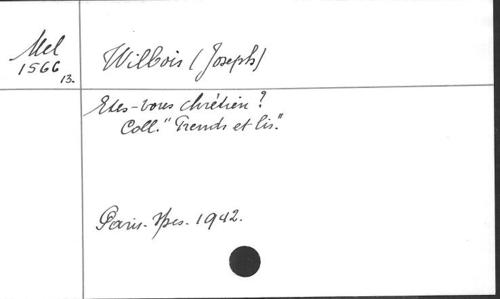 Mel
1566
13.
Wilbois (Joseph)
Etes-vous chrétien?
Coll. "Prends et lis".
Paris. Spes. 1942.